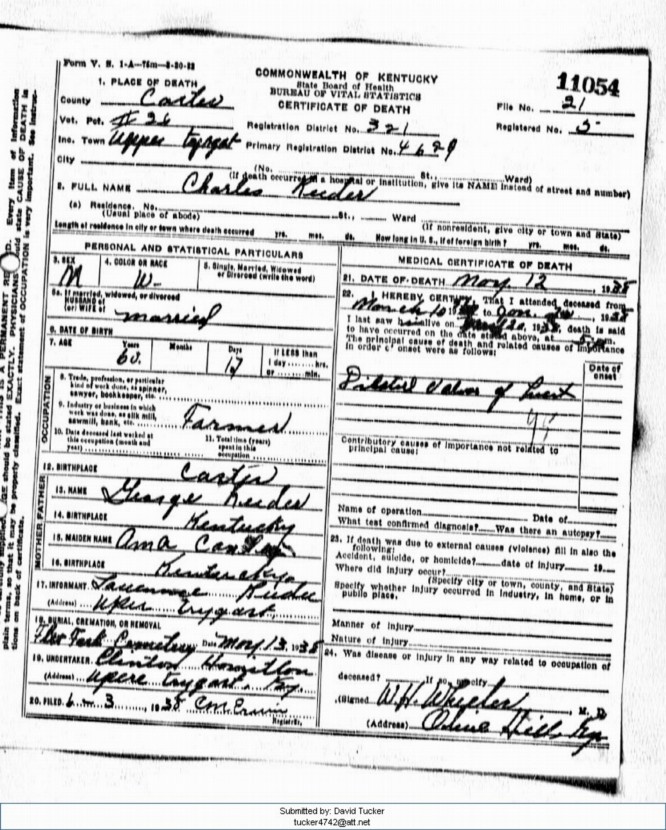 Form V. S. 1-A
COMMONWEALTH OF KENTUCKY
State Board of Health
BUREAU OF VITAL STATISTICS
CERTIFICATE OF DEATH
11054
File No. 21
Registered No. 5
1. PLACE OF DEATH
County Carter
Vot. Pct. # 26
Registration District No. 321
Inc. Town Upper Tygart Primary Registration District No. 4629
City (No. St., Ward)
(If death occurred in a hospital or institution, give its NAME instead of street and number)
2. FULL NAME Charles
(a) Residence. No. St., Ward
(Usual place of abode) (If nonresident, give city or town and State)
Length of residence in city or town where death occurred yrs. mos. ds. How long in U. S., if of foreign birth? yrs. mos. ds.
PERSONAL AND STATISTICAL PARTICULARS
3. SEX M
4. COLOR OR RACE W-
5. Single, Married, Widowed or Divorced (write the word)
5a. If married, widowed, or divorced
HUSBAND of
(or) WIFE of married
6. DATE OF BIRTH
7. AGE 60 Months Days 17 If LESS than 1 day hrs. or min.
OCCUPATION
8. Trade, profession, or particular kind of work done, as spinner, sawyer, bookkeeper, etc.
9. Industry or business in which work was done, as silk mill, sawmill, bank, etc. Farmer
10. Date deceased last worked at this occupation (month and year)
11. Total time (years) spent in this occupation
12. BIRTHPLACE Carter
FATHER
13. NAME George
14. BIRTHPLACE Kentucky
MOTHER
15. MAIDEN NAME Ama
16. BIRTHPLACE
17. INFORMANT
(Address) Uper Trygart
18. BURIAL, CREMATION, OR REMOVAL
Cemetery Date May 13, 1938
19. UNDERTAKER Clinton
(Address) Upere Trygart Ky.
20. FILED 6 - 3 1938 C M Erwin
Registrar.
MEDICAL CERTIFICATE OF DEATH
21. DATE OF DEATH May 12, 1938
22. I HEREBY CERTIFY, That I attended deceased from
March 10 to 1938
I last saw h alive on 20, 1938, death is said
to have occurred on the date stated above, at 5 m.
The principal cause of death and related causes of importance
in order of onset were as follows:
Date of onset
of heart
Contributory causes of importance not related to
principal cause:
Name of operation Date of
What test confirmed diagnosis? Was there an autopsy?
23. If death was due to external causes (violence) fill in also the
following:
Accident, suicide, or homicide? date of injury 19
Where did injury occur?
(Specify city or town, county, and State)
Specify whether injury occurred in industry, in home, or in
public place.
Manner of injury
Nature of injury
24. Was disease or injury in any way related to occupation of
deceased? If so, specify
(Signed W. H. Wheeler M. D.
(Address) Olive Hill Ky
Submitted by: David Tucker
tucker4742@att.net